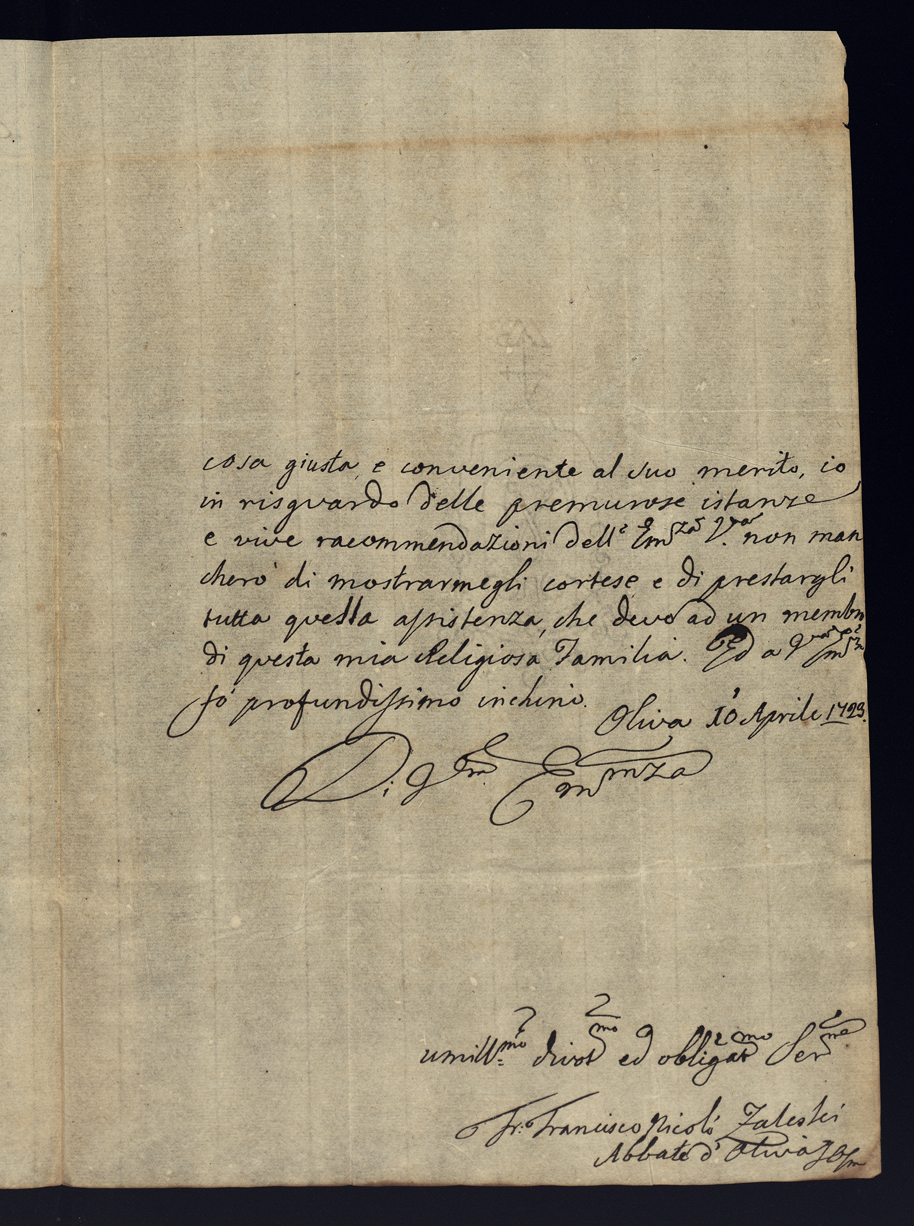 cosa giusta, e conveniente al suo merito, io
in risguardo delle premurose istanze
e vive racommendazioni dell' Emza Vra non man
cherò di mostrarmegli cortese e di prestargli
tutta quella assistenza, che devo ad un membro
di questa mia Religiosa Familia. Ed a Vra
fò profundissimo inchino.
Oliva 10 Aprile 1723.
Di Emza
umillmo divotmo ed obligatmo
Fr: Francisco Nicolò Zaleski
Abbate d' Oliva